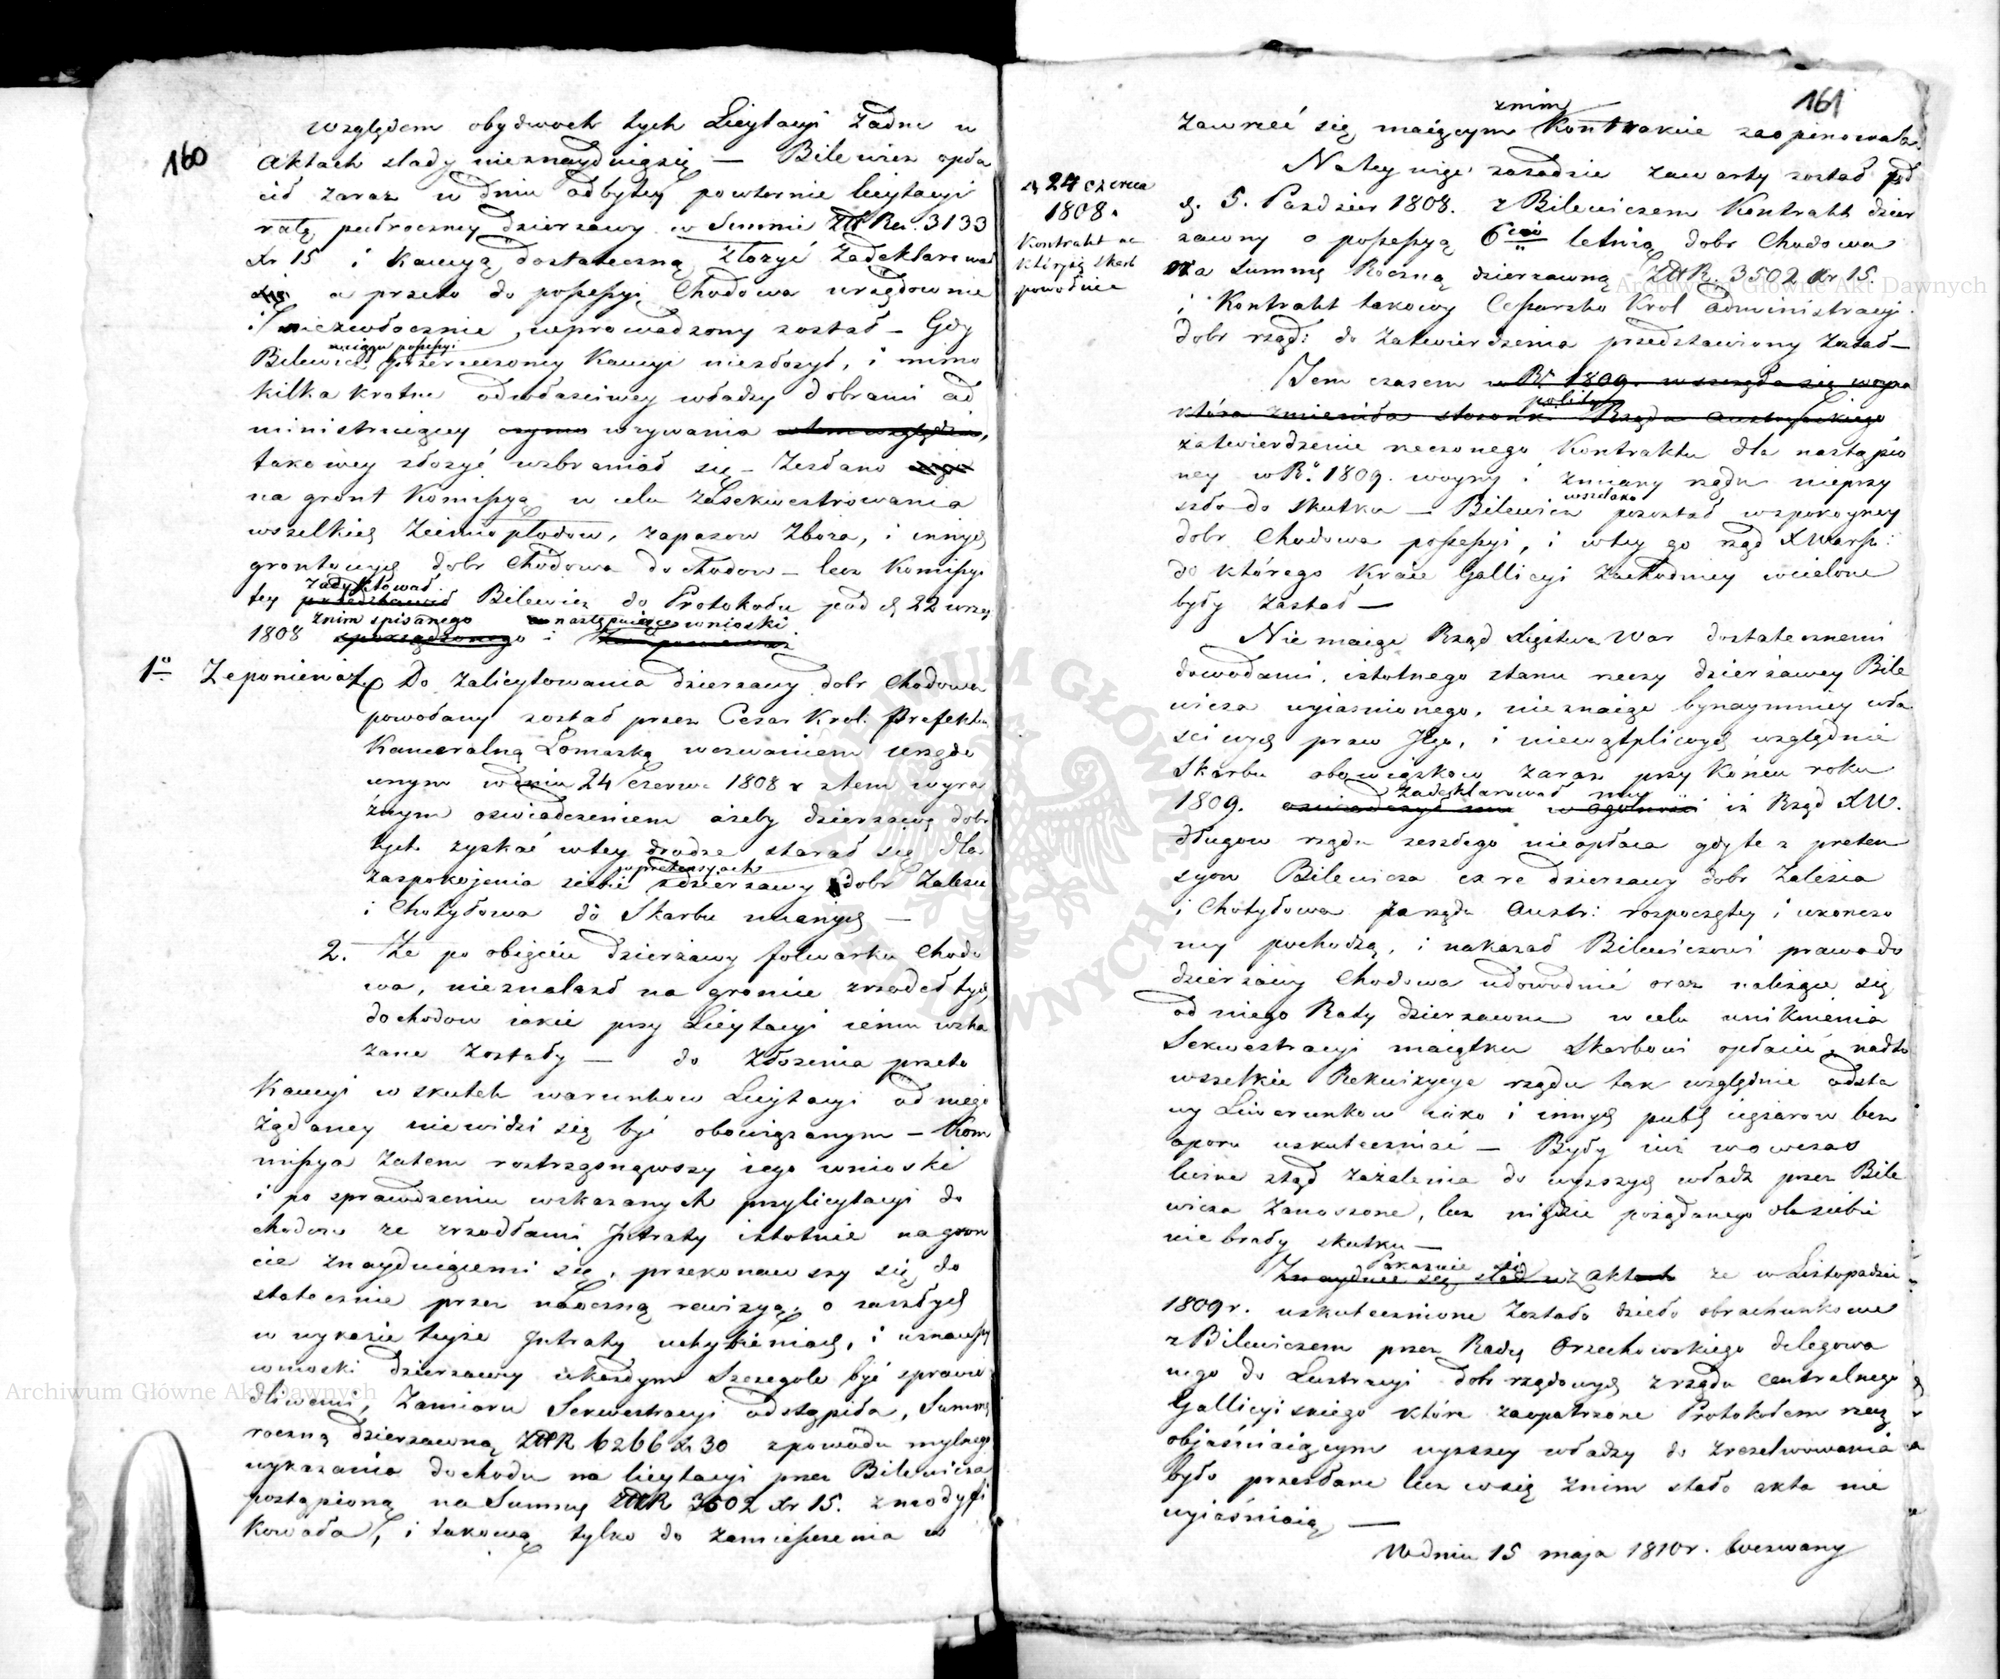 160
względem obydwóch tych Licytacyi żadne w
aktach slady nieznayduią się — Bilewicz opła
cił zaraz w dniu odbytey powtornie licytacyi
ratę pułroczney dzierzawy w Summie ZłR 3133
Xr 15 i kaucyą dostateczną złożyć zadeklarował
się a przeto do possessyi Chodowa urzędownie
i niezwłocznie wprowadzony został — Gdy
w ciągu possessyi
Bilewicz przerzeczoney Kaucyi niezłożył, i mimo
kilka krotne od właściwey władzy dobrami ad
ministruiącey wzywania w tem względzie,
takowey złożyć wzbraniał się — Zesłano
na grunt Kommissyą w celu zasekwestrowania
wszelkich Ziemiopłodow, zapasow Zboża, i innych
gruntowych dobr Chodowa dochodow — lecz Kommissyi
zadyktował
tey przedstawił Bilewicz do Protokołu pod d 22 wrześ
znim spisanego następuiące wnioski
1808 sporządzonego i
1o Ze ponieważ Do zalicytowania dzierzawy dobr Chodowa
powołany został przez Cesar Krol: Prefektu
Kameralną Łomaską wezwaniem urzędo
wnym w dniu 24 Czerwca 1808 r z tem wyra
źnym oświadczeniem ażeby dzierzawę dobr
tych zyskać w tey drodze starał się dla
w pretensyach
zaspokojenia siebie z dzierzawy dobr Zalesia
i Chotyłowa do Skarbu mianych —
2. Ze po obięciu dzierżawy folwarku Chodo
wa, nieznalazł na gruncie zrzodeł tych
dochodow iakie przy Licytacyi iemu wska
zane zostały — do złożenia przeto
Kaucyi w skutek warunkow Licytacyi od niego
żądaney niewidzi się być obowiązanym — Kom
missya zatem roztrząsnąwszy iego wnioski
i po sprawdzeniu wskazanych przy licytacyi do
chodow ze zrzodłami Intraty istotnie na grun
cie znayduiącemi się, przekonawszy się do
statecznie przez naoczną rewizyą, o zaszłych
w wykazie teyże Intraty uchybieniach, i uznawszy
wnioski dzierzawcy w każdym Szczegole być sprawie
dliwemi, Zamiaru Sekwestracyi odstąpiła, Summę
roczną dzierzawną ZłR 6266 Xr 30 z powodu mylnego
wykazania dochodu na licytacyi przez Bilewicza
postąpioną na Summę ZłR 3502 Xr 15. zmodyfi
kowała, i takową tylko do zamieszczenia w
161
znim
zawrzeć się maiącym Kontrakcie zaopiniowała.
d 24 czerwca
1808.
Kontrakt na
który się skarb
powoduie
Na tey więc zasadzie zawarty został pod
d. 5. Pazdzier 1808. z Bilewiczem Kontrakt dzier
zawny o possessyą 6cio letnią dobr Chodowa
za summę Roczną dzierzawną ZłR. 3502 Xr 15.
i Kontrakt takowy Cessarsko Krol administracyi
dobr rząd: do zatwierdzenia przedstawiony został —
Tem czasem w Rr 1809. wszczęła się woyna
polity
która zmieniła stosunki Rządu Austryackiego
zatwierdzenie rzeczonego Kontraktu dla nastąpio
ney w Ro. 1809. woyny i zmiany rządu nieprzy
wszelako
szło do skutku — Bilewicz pozostał w spokoyney
dobr Chodowa possessyi, i w tey go rząd X Warsz:
do którego Kraie Gallicyi zachodniey wcielone
były zastał —
Nie maiąc Rząd Xięstwa War dostatecznemi
dowodami, istotnego stanu rzeczy dzierżawcy Bile
wicza wyiasnionego, nieznaiąc bynaymniey wła
sciwych praw Jego, i niewątpliwych względnie
Skarbu obowiązkow zaraz przy Końcu roku
zadeklarował mu
1809. oswiadczył mu w ogolności iż Rząd XW.
długow rządu zeszłego nieopłaca gdyte z preten
syow Bilewicza ex re dzierzawy dobr Zalesia
i Chotyłowa za rządu Austr: rozpoczętey i ukończo
ny pochodzą, i nakazał Bilewiczowi prawo do
dzierżawy Chodowa udowodnić oraz należące się
od niego Raty dzierzawne w celu uniknienia
Sekwestracyi maiątku Skarbowi opłacić, nadto
wszelkie Rekwizycye rządu tak względnie odsta
wy Liwerunkow iako i innych publ cięzarow bez
oporu uskuteczniać — Były iuż wowczas
liczne ztąd zażalenia do wyższych władz przez Bile
wicza zanoszone, lecz nigdzie pożądanego dla siebie
nie brały skutku —
Pokazuie się
Znayduie się slad w z aktach ze w Listopadzie
1809 r. uskutecznione zostało dzieło obrachunkowe
z Bilewiczem przez Radcę Orzechowskiego delegowa
nego do Lustracyi dobr rządowych z rządu centralnego
Gallicyiskiego które zaopatrzone Protokołem rzecz
objaśniaiącym wyższey władzy do zrezolwowania
było przesłane lecz co się znim stało akta nie
wyiaśniaią —
W dniu 15 maja 1810 r. wezwany
Archiwum Główne Akt Dawnych
Archiwum Główne Akt Dawnych